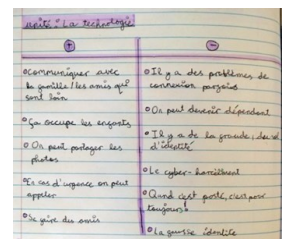 unité : La technologie
+
-
•communiquer avec
la famille / les amis qui
sont loin
•Ça occupe les enfants
•On peut partager les
photos
•En cas d'urgence on peut
appeler
•Se faire des amis
•Il y a des problèmes de
connexion parfois
•On peut devenir dépendant
•Il y a de la fraude, de vol
d'identité
•Le cyber-harcèlement
•Quand c'est posté, c'est pour
toujours!
•La fausse identité